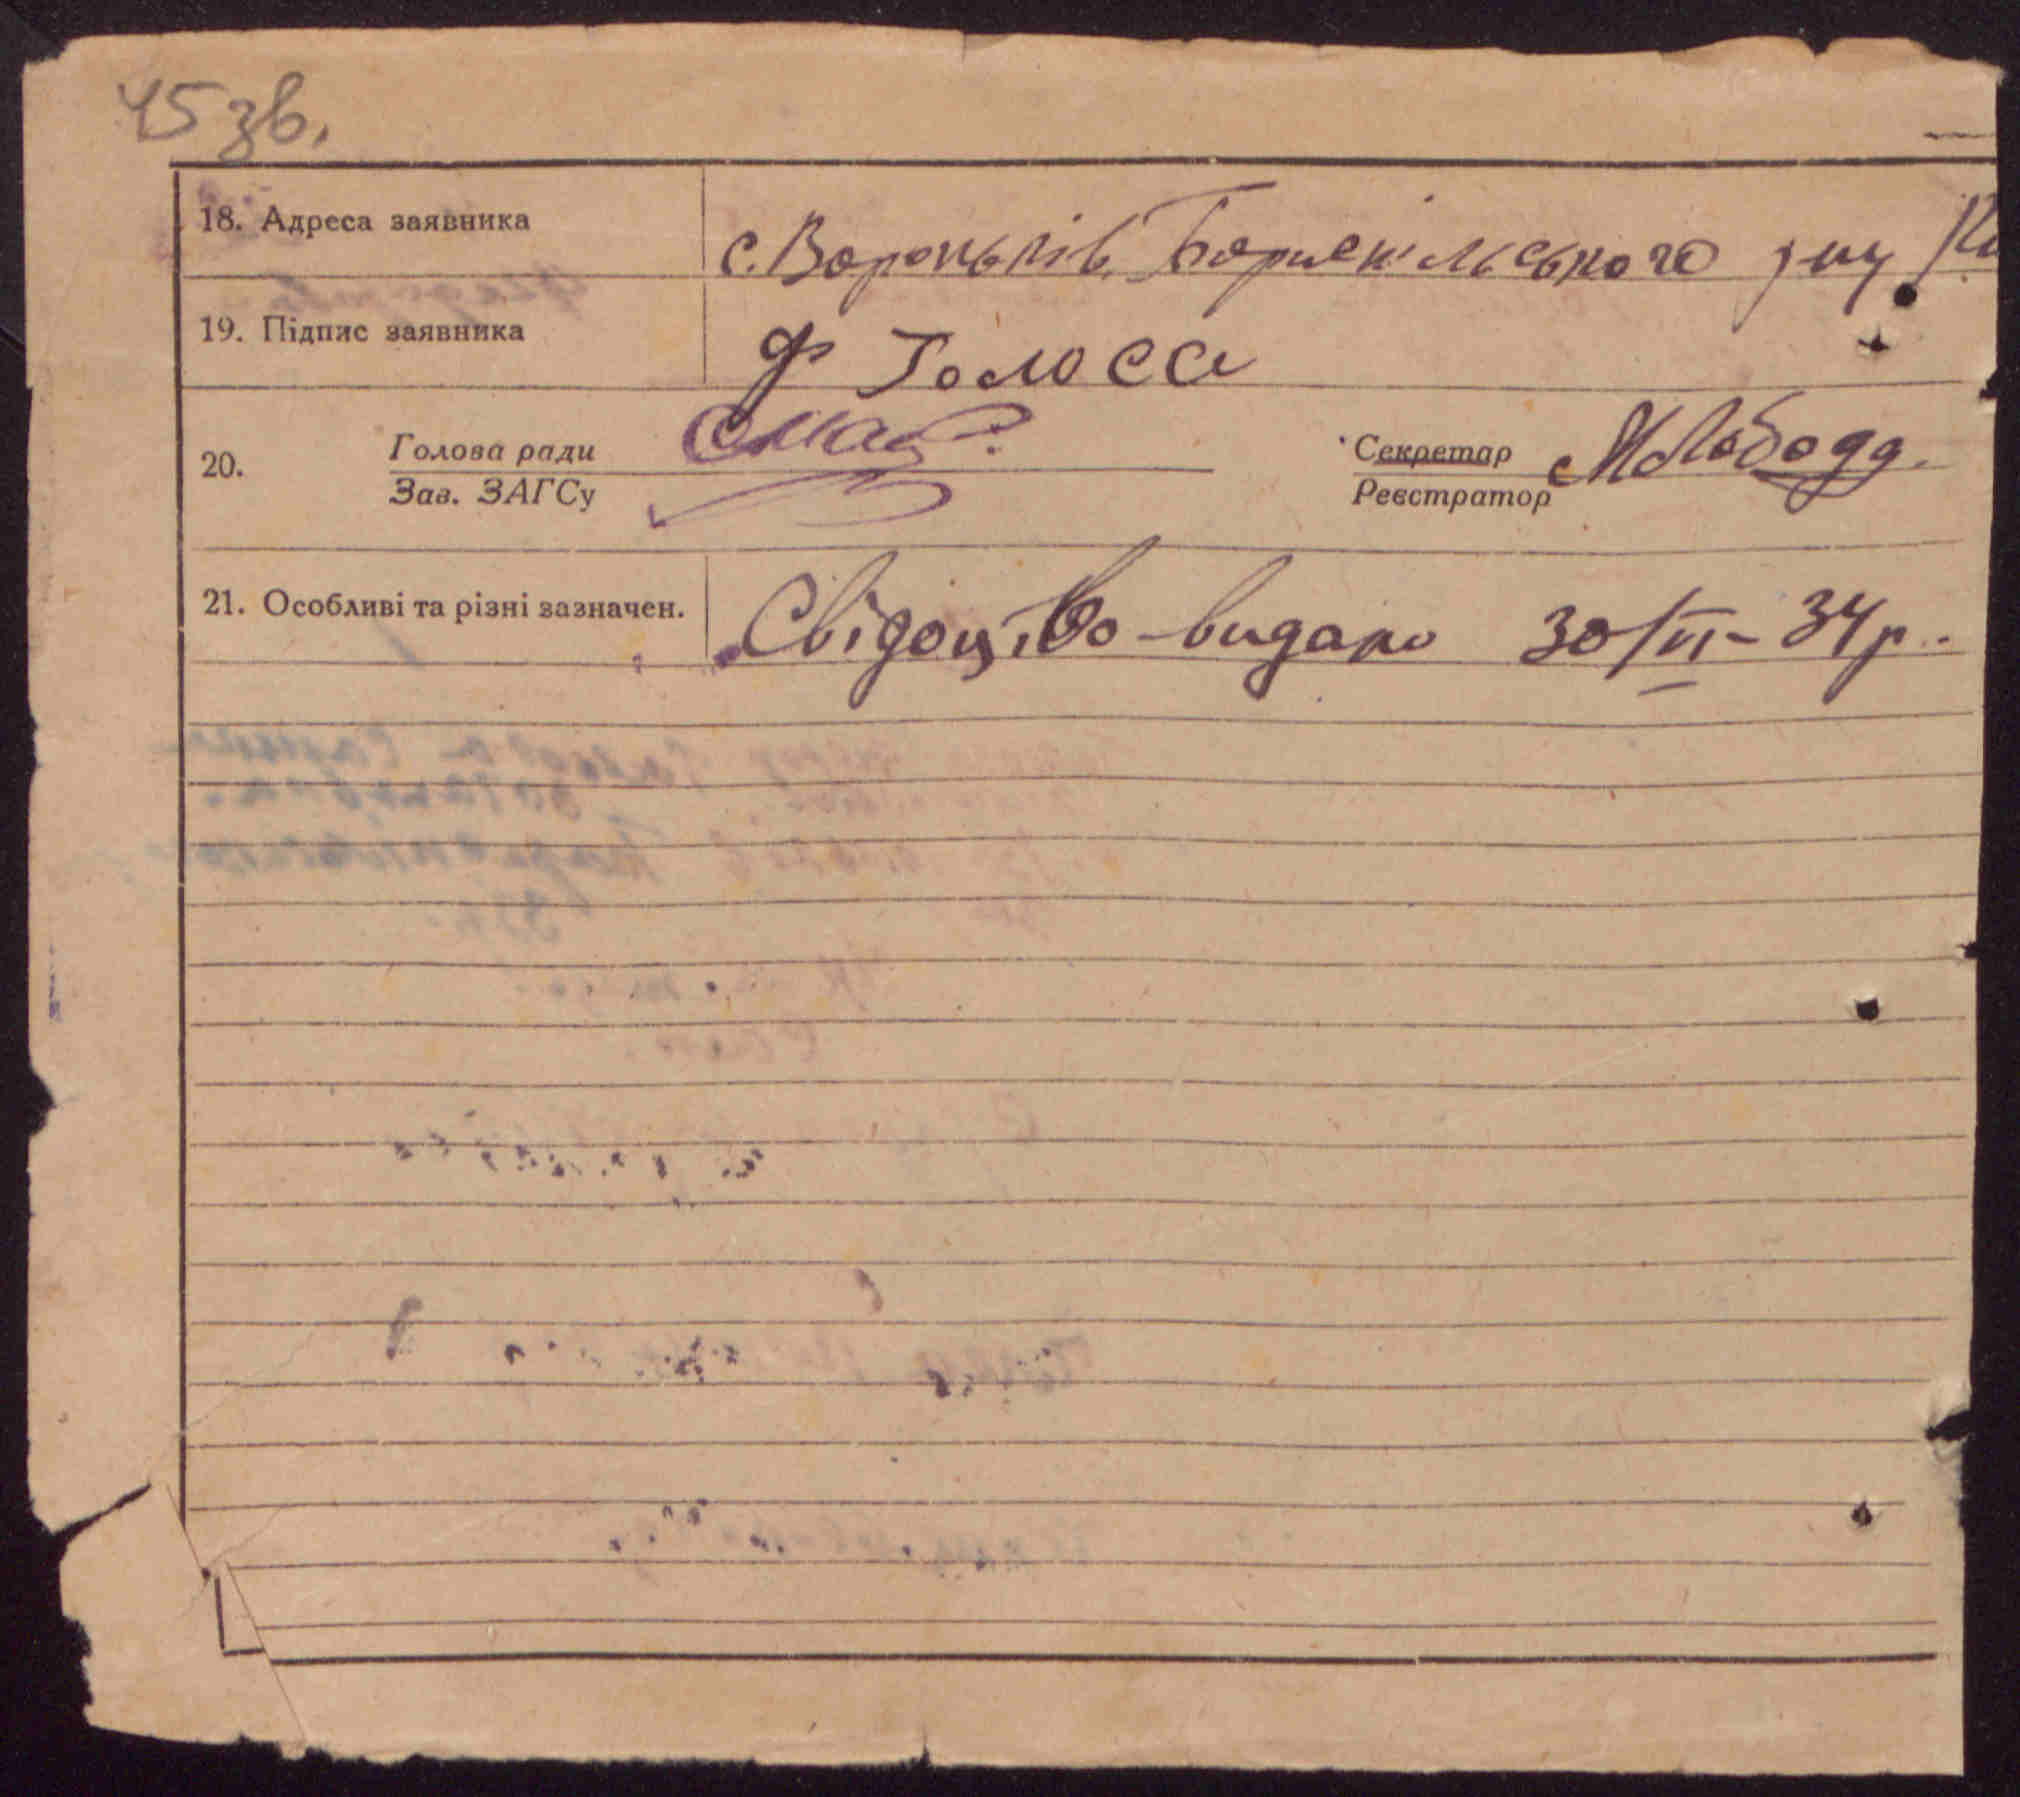 45 зв.
18. Адреса заявника с. Вороньків Бориспільського р-ну
19. Підпис заявника Ф Голоса
20. Голова ради Секретар М Лобода
Зав. ЗАГСу Реєстратор
21. Особливі та різні зазначен. Свідоцтво видано 30/VI-34 р.